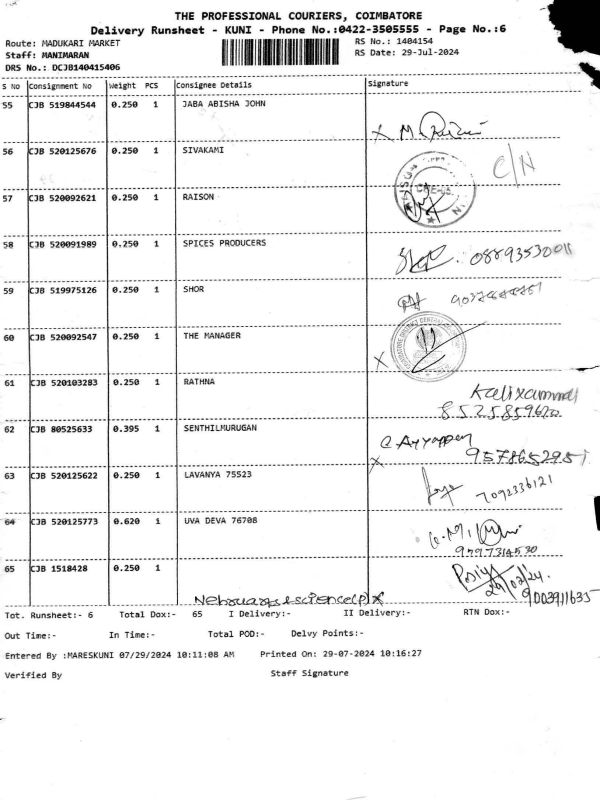 THE PROFESSIONAL COURIERS, COIMBATORE
Delivery Runsheet - KUNI - Phone No.:0422-3505555 - Page No.:6
Route: MADUKARI MARKET RS No.: 1404154
Staff: MANIMARAN RS Date: 29-Jul-2024
DRS No.: DCJB140415406
S No Consignment No Weight PCS Consignee Details Signature
55 CJB 519844544 0.250 1 JABA ABISHA JOHN
X M
56 CJB 520125676 0.250 1 SIVAKAMI
C/N
57 CJB 520092621 0.250 1 RAISON
58 CJB 520091989 0.250 1 SPICES PRODUCERS
59 CJB 519975126 0.250 1 SHOR
60 CJB 520092547 0.250 1 THE MANAGER
X
61 CJB 520103283 0.250 1 RATHNA
62 CJB 80525633 0.395 1 SENTHILMURUGAN
X
63 CJB 520125622 0.250 1 LAVANYA 75523
7092336121
64 CJB 520125773 0.620 1 UVA DEVA 76708
65 CJB 1518428 0.250 1
Tot. Runsheet:- 6 Total Dox:- 65 I Delivery:- II Delivery:- RTN Dox:-
Out Time:- In Time:- Total POD:- Delvy Points:-
Entered By :MARESKUNI 07/29/2024 10:11:08 AM Printed On: 29-07-2024 10:16:27
Verified By Staff Signature